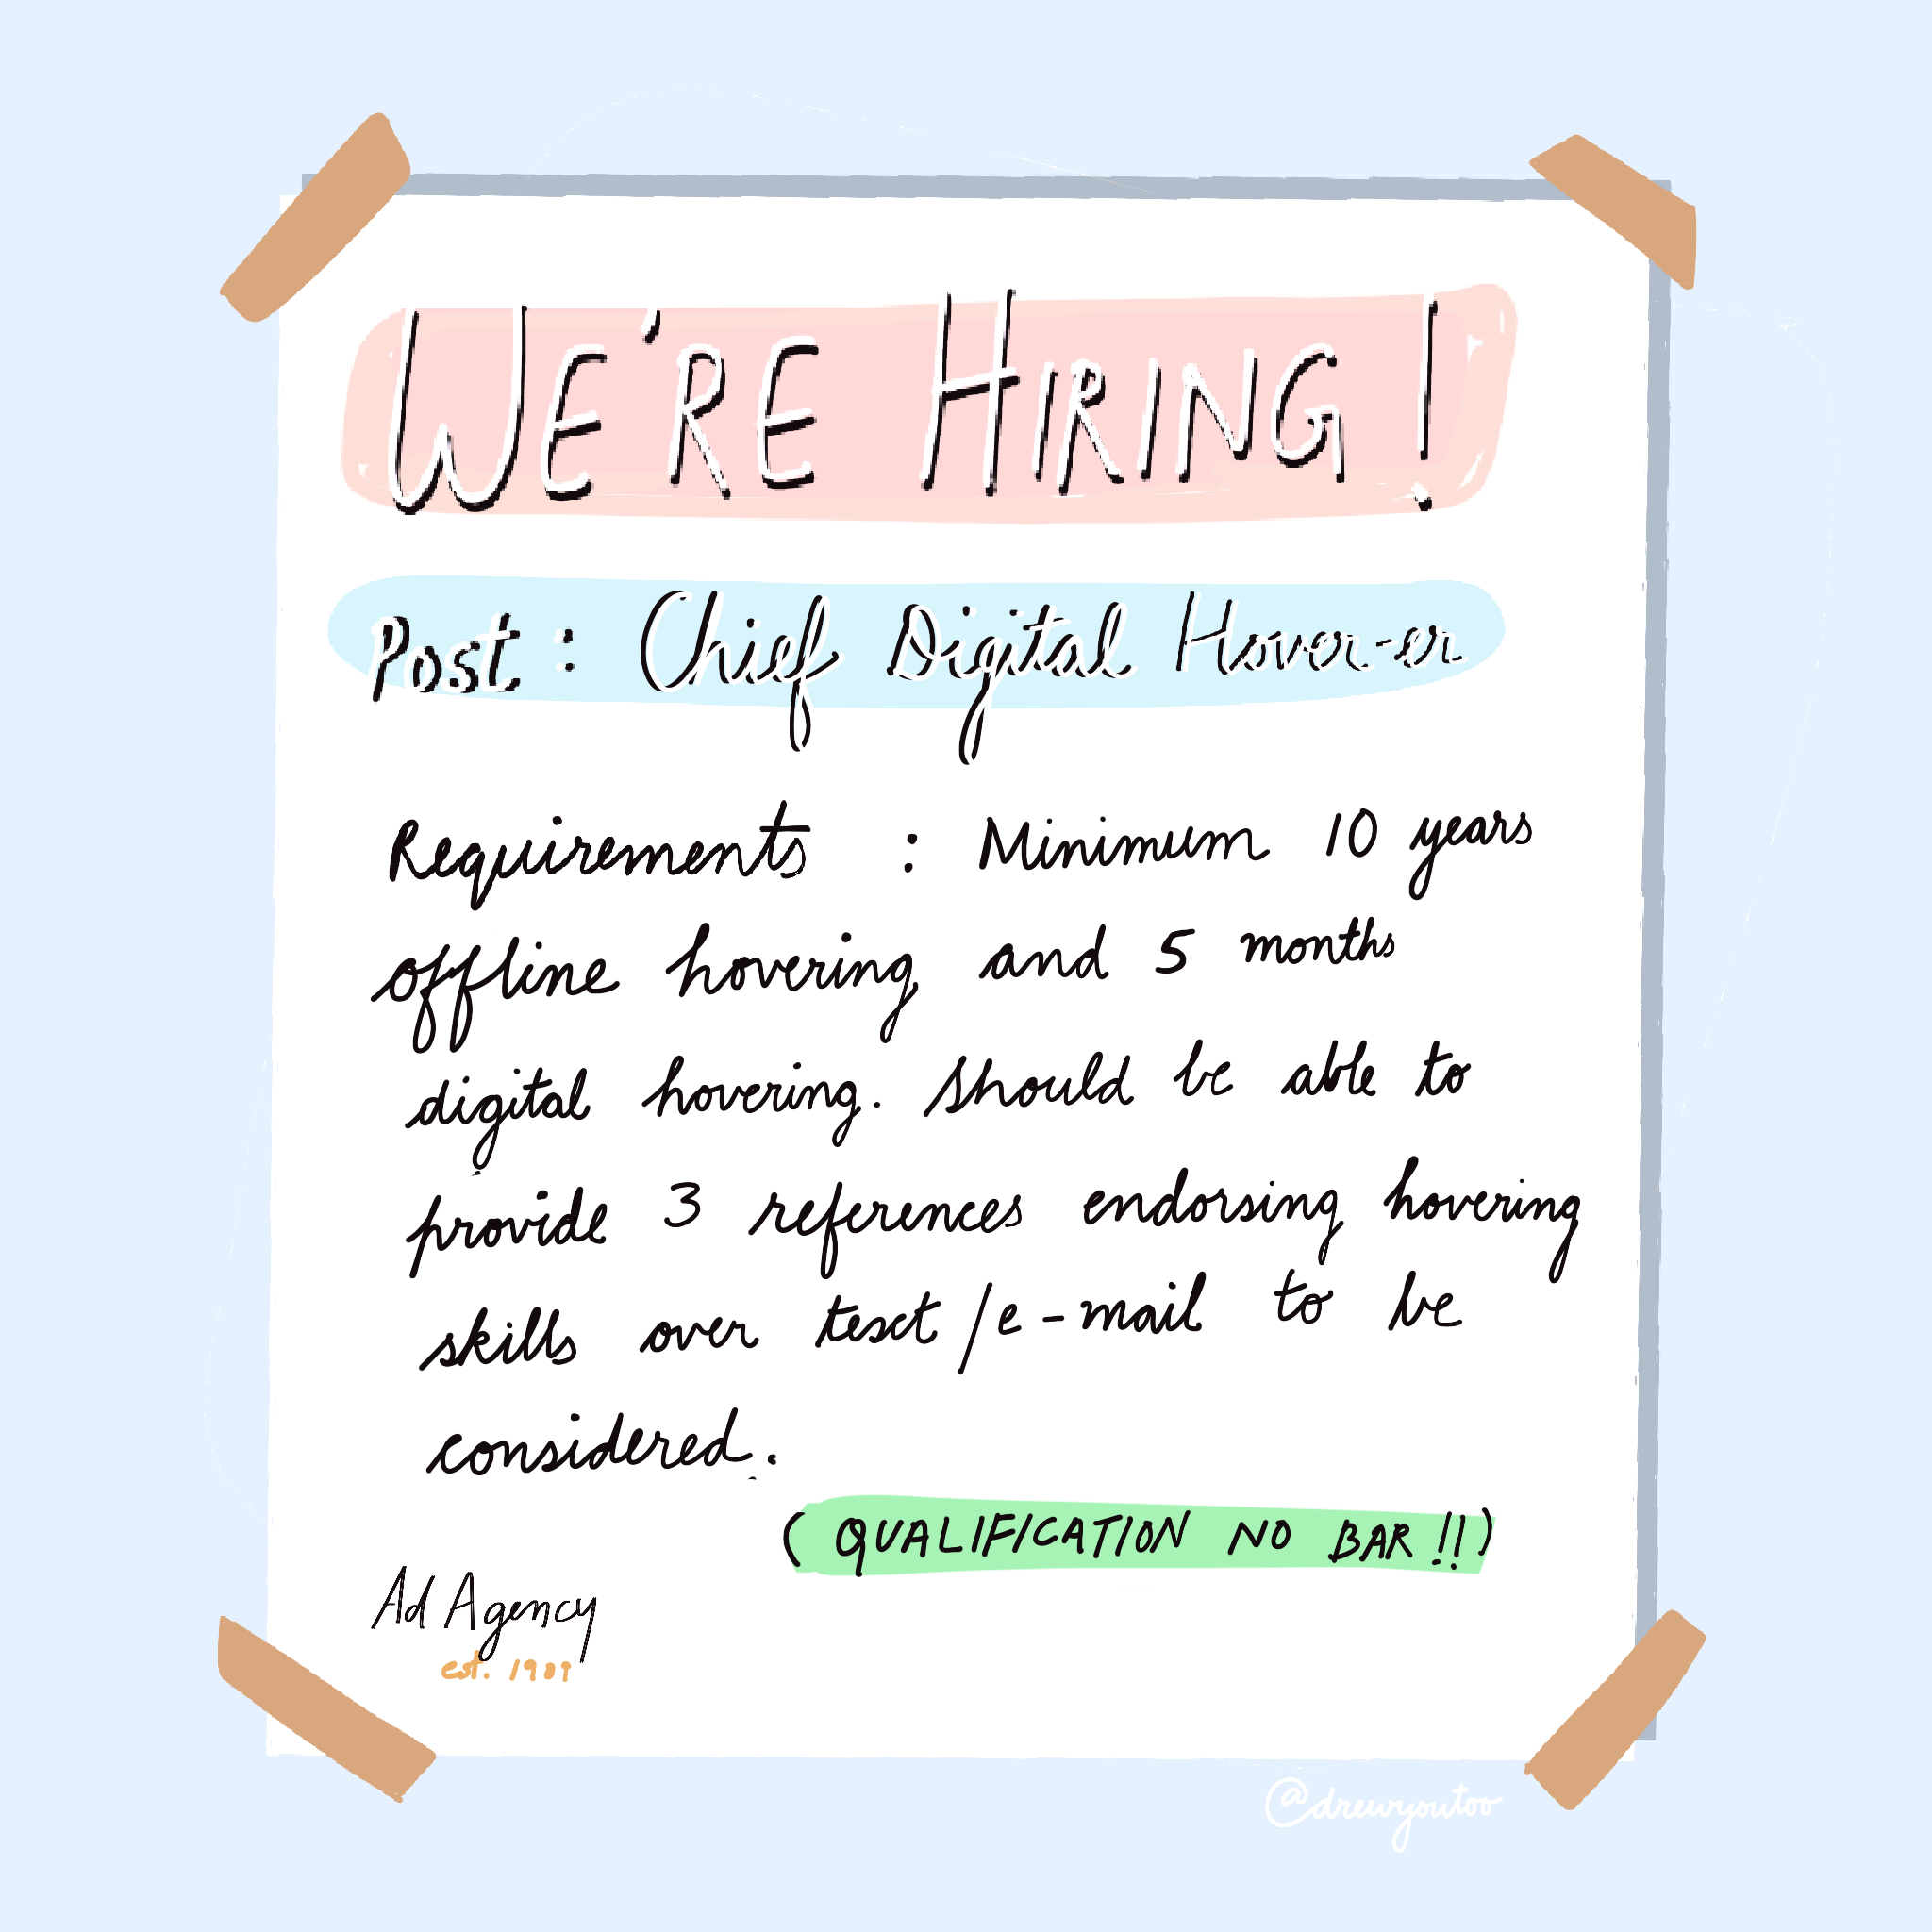 WE'RE HIRING!
Post: Chief Digital Hover-er
Requirements : Minimum 10 years
offline hovering and 5 months
digital hovering. Should be able to
provide 3 references endorsing hovering
skills over text/e-mail to be
considered.
(QUALIFICATION NO BAR!!)
Ad Agency
est. 1989
@drewyoutoo